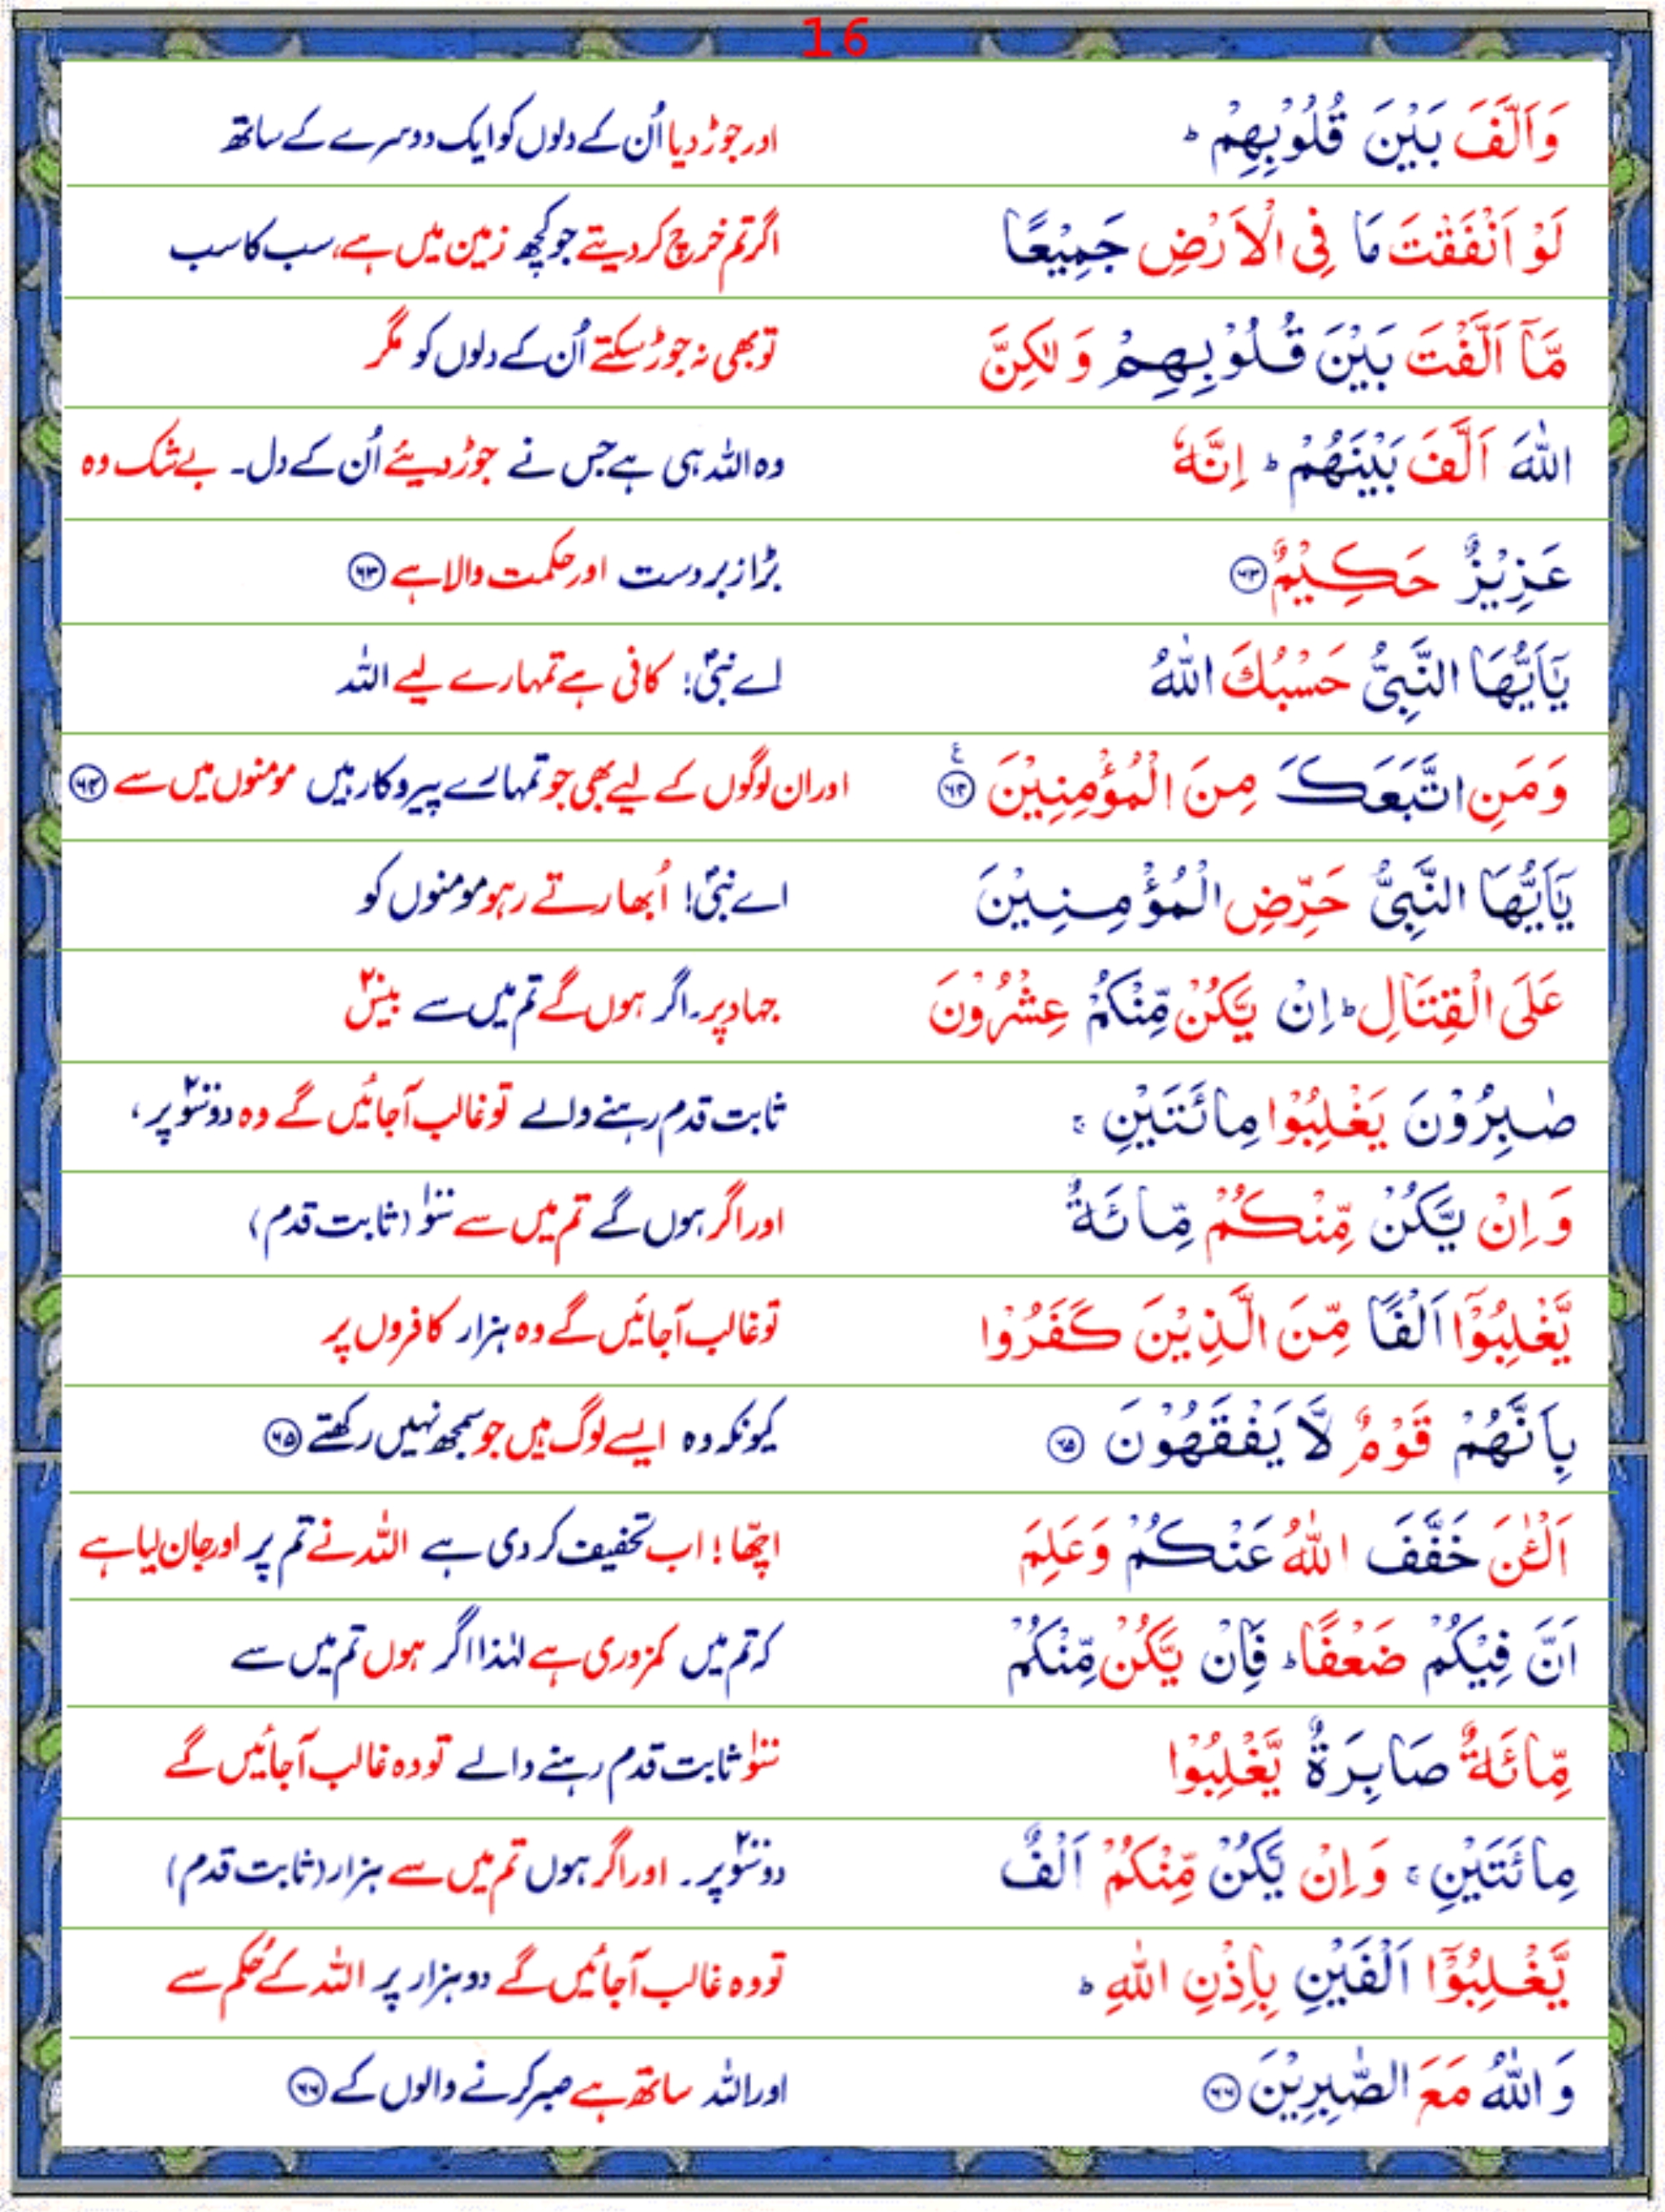 16
وَاَلَّفَ بَيْنَ قُلُوْبِهِمْ ؕ اور جوڑ دیا اُن کے دلوں کو ایک دوسرے کے ساتھ
لَوْ اَنْفَقْتَ مَا فِى الْاَرْضِ جَمِيْعًا اگر تم خرچ کر دیتے جو کچھ زمین میں ہے، سب کا سب
مَّاۤ اَلَّفْتَ بَيْنَ قُلُوْبِهِمْ وَ لٰكِنَّ تو بھی نہ جوڑ سکتے اُن کے دلوں کو مگر
اللّٰهَ اَلَّفَ بَيْنَهُمْ ؕ اِنَّهٗ وہ اللہ ہی ہے جس نے جوڑ دیئے اُن کے دل۔ بے شک وہ
عَزِيْزٌ حَكِيْمٌ ﴿۶۳﴾ بڑا زبردست اور حکمت والا ہے ﴿۶۳﴾
يٰۤاَيُّهَا النَّبِىُّ حَسْبُكَ اللّٰهُ اے نبیؐ! کافی ہے تمہارے لیے اللہ
وَ مَنِ اتَّبَعَكَ مِنَ الْمُؤْمِنِيْنَ ﴿۶۴﴾ ع اور ان لوگوں کے لیے بھی جو تمہارے پیروکار ہیں مومنوں میں سے ﴿۶۴﴾
يٰۤاَيُّهَا النَّبِىُّ حَرِّضِ الْمُؤْمِنِيْنَ اے نبیؐ! اُبھارتے رہو مومنوں کو
عَلَى الْقِتَالِ ؕ اِنْ يَّكُنْ مِّنْكُمْ عِشْرُوْنَ جہاد پر۔ اگر ہوں گے تم میں سے بیس۲۰
صٰبِرُوْنَ يَغْلِبُوْا مِائَتَيْنِ ۚ ثابت قدم رہنے والے تو غالب آجائیں گے وہ دوسو۲۰۰ پر،
وَ اِنْ يَّكُنْ مِّنْكُمْ مِّائَةٌ اور اگر ہوں گے تم میں سے سو۱۰۰ (ثابت قدم)
يَّغْلِبُوْۤا اَلْفًا مِّنَ الَّذِيْنَ كَفَرُوْا تو غالب آجائیں گے وہ ہزار کافروں پر
بِاَنَّهُمْ قَوْمٌ لَّا يَفْقَهُوْنَ ﴿۶۵﴾ کیونکہ وہ ایسے لوگ ہیں جو سمجھ نہیں رکھتے ﴿۶۵﴾
اَلْـٰٔنَ خَفَّفَ اللّٰهُ عَنْكُمْ وَعَلِمَ اچھا! اب تخفیف کر دی ہے اللہ نے تم پر اور جان لیا ہے
اَنَّ فِيْكُمْ ضَعْفًا ؕ فَاِنْ يَّكُنْ مِّنْكُمْ کہ تم میں کمزوری ہے لہٰذا اگر ہوں تم میں سے
مِّائَةٌ صَابِرَةٌ يَّغْلِبُوْا سو۱۰۰ ثابت قدم رہنے والے تو وہ غالب آجائیں گے
مِائَتَيْنِ ۚ وَ اِنْ يَّكُنْ مِّنْكُمْ اَلْفٌ دوسو۲۰۰ پر۔ اور اگر ہوں تم میں سے ہزار (ثابت قدم)
يَّغْلِبُوْۤا اَلْفَيْنِ بِاِذْنِ اللّٰهِ ؕ تو وہ غالب آجائیں گے دو ہزار پر اللہ کے حُکم سے
وَ اللّٰهُ مَعَ الصّٰبِرِيْنَ ﴿۶۶﴾ اور اللہ ساتھ ہے صبر کرنے والوں کے ﴿۶۶﴾